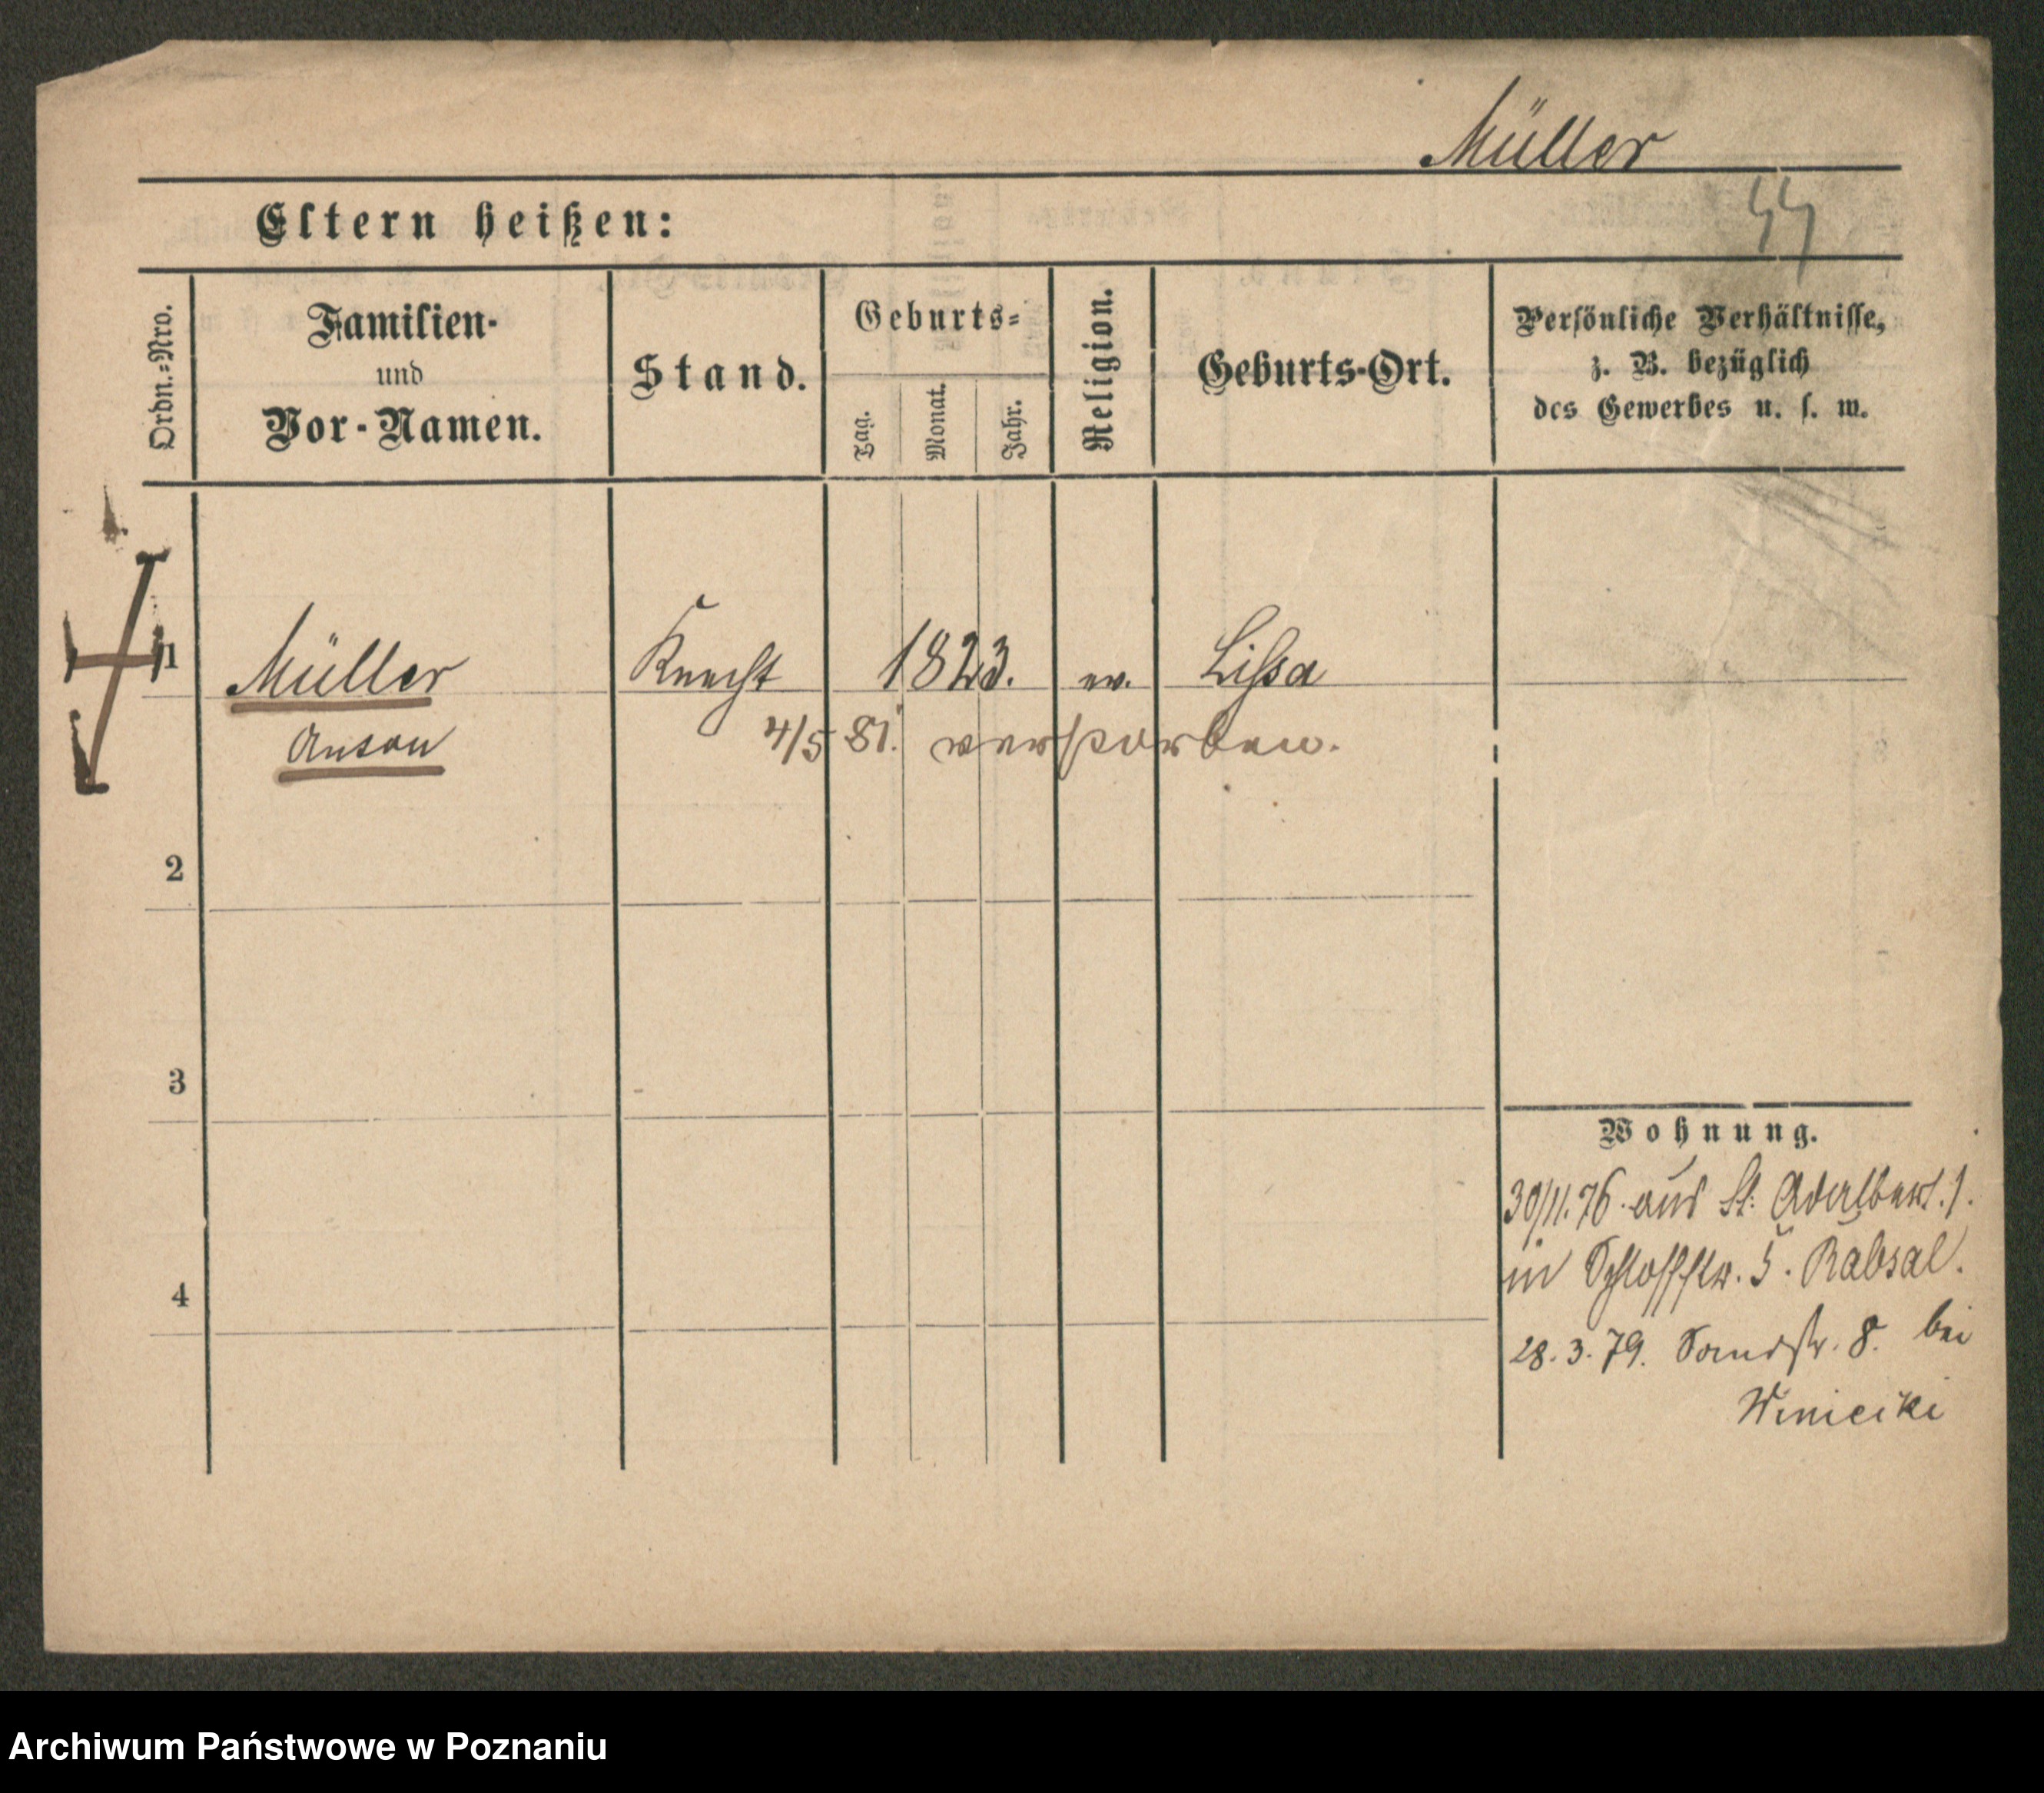 Müller
44
Eltern heißen:
Ordn.-Nro.
Familien-
und
Vor-Namen.
Stand.
Geburts-
Tag.
Monat.
Jahr.
Religion.
Geburts-Ort.
Persönliche Verhältnisse,
z. B. bezüglich
des Gewerbes u. s. w.
1
Müller Knecht 1823. ev. Lissa
Anton
4/5 81. verstorben.
2
3
4
Wohnung.
30/11.76. aus St. Adalbert. 1.
in Schloßstr. 5. Rabsal.
28.3.79. Sandstr. 8. bei
Winiecki
Archiwum Państwowe w Poznaniu